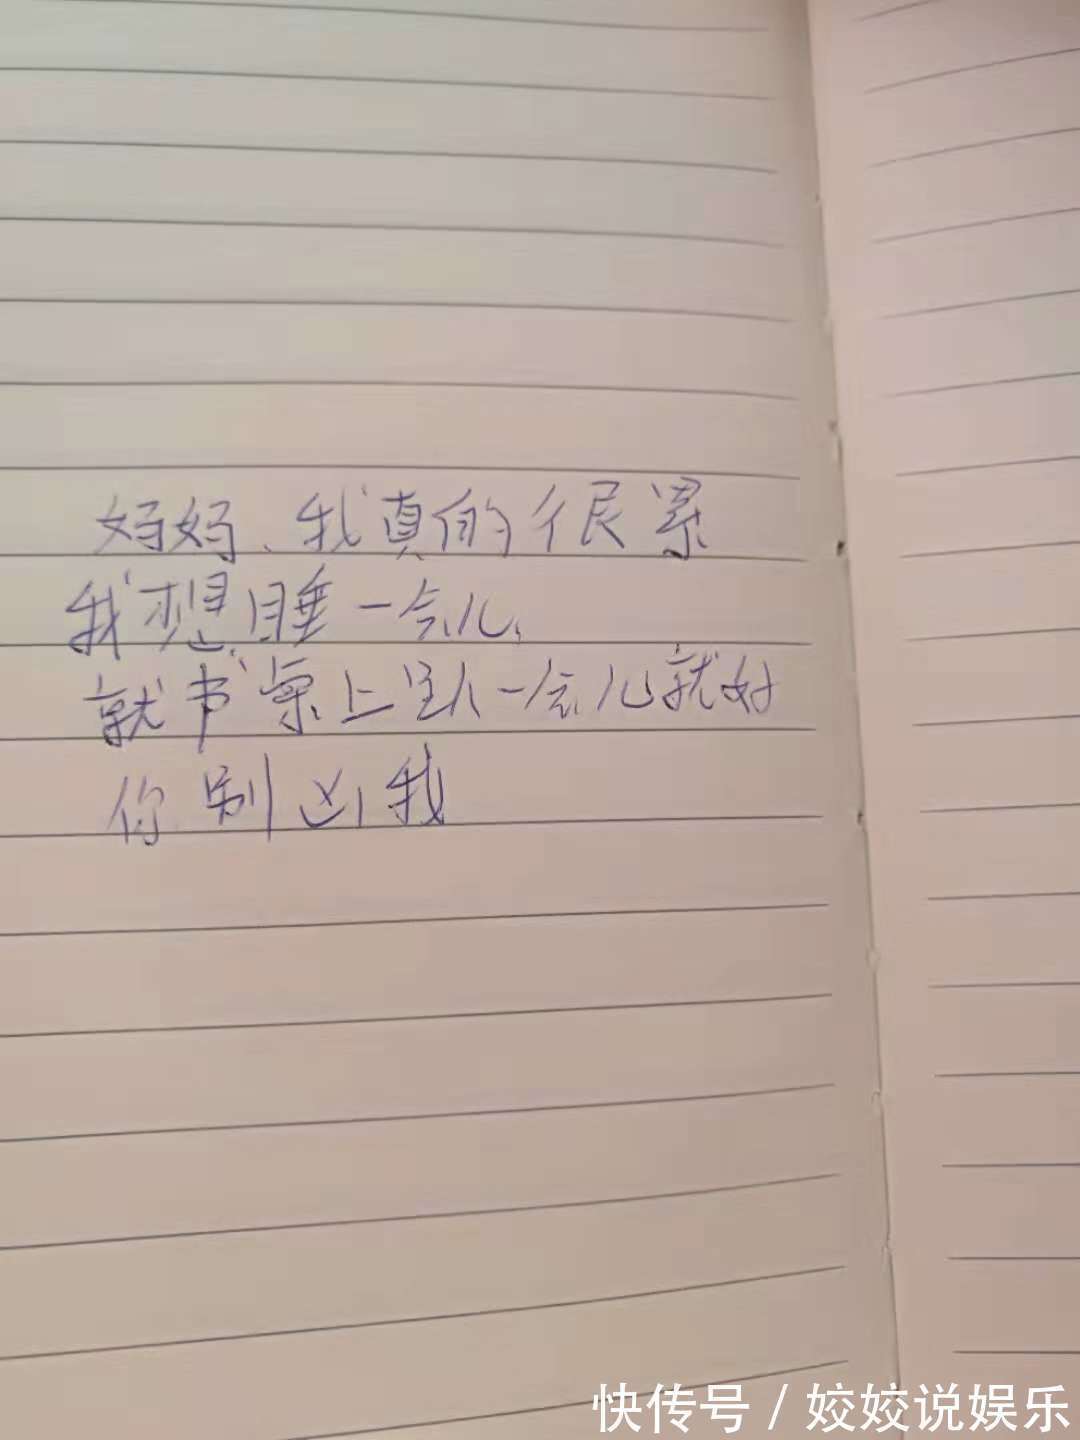 妈妈、我真的很累
我想睡一会儿、
就书桌上趴一会儿就好
你别凶我
快传号/姣姣说娱乐